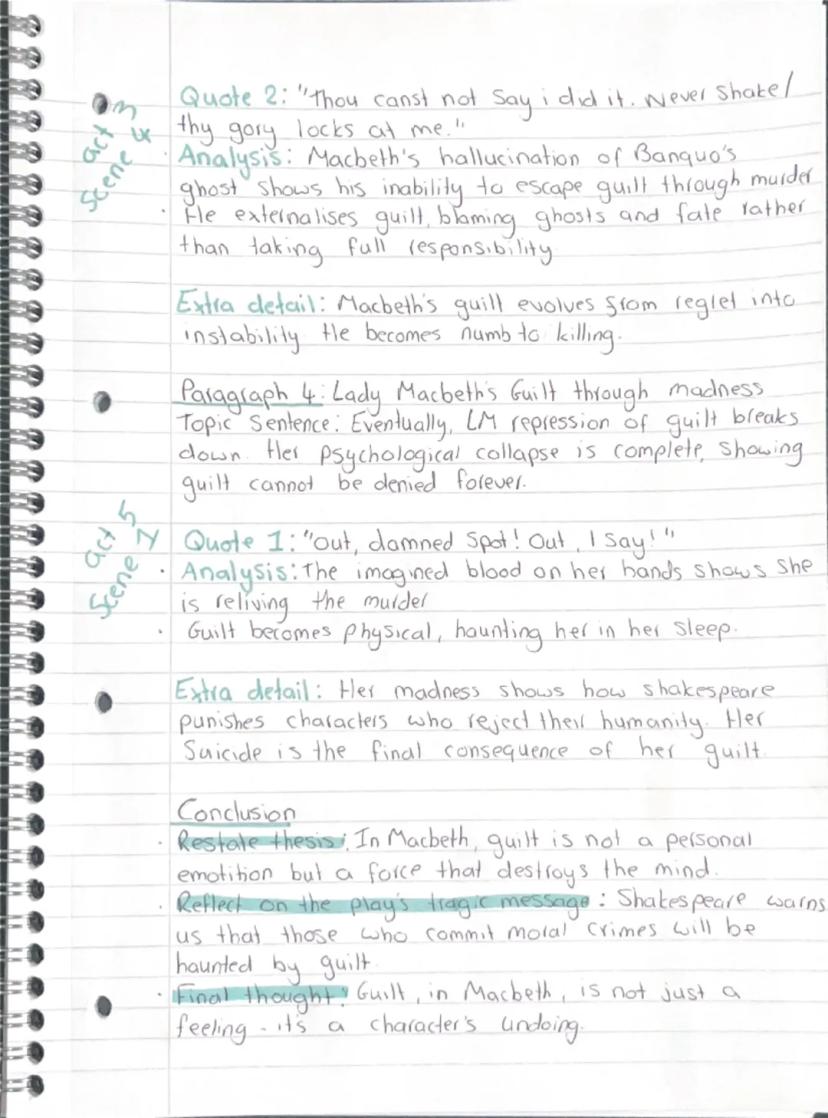 Quote 2: "Thou canst not say i did it. Never shake/
thy gory locks at me."
act 3
Scene 4
Analysis: Macbeth's hallucination of Banquo's
ghost shows his inability to escape guilt through murder
· He externalises guilt, blaming ghosts and fate rather
than taking full responsibility
Extra detail: Macbeth's guilt evolves from regret into
instability He becomes numb to killing.
Paragraph 4: Lady Macbeth's Guilt through madness
Topic Sentence: Eventually, LM repression of guilt breaks
down. Her psychological collapse is complete, showing
guilt cannot be denied forever.
act 5
Scene 1
Quote 1: "Out, damned spot! Out, I say!"
· Analysis: The imagined blood on her hands shows she
is reliving the murder
· Guilt becomes physical, haunting her in her sleep.
Extra detail: Her madness shows how shakespeare
punishes characters who reject their humanity. Her
Suicide is the final consequence of her guilt.
Conclusion
· Restate thesis: In Macbeth, guilt is not a personal
emotition but a force that destroys the mind.
· Reflect on the play's tragic message: Shakespeare warns
us that those who commit moral crimes will be
haunted by guilt.
· Final thought: Guilt, in Macbeth, is not just a
feeling - it's a character's undoing.